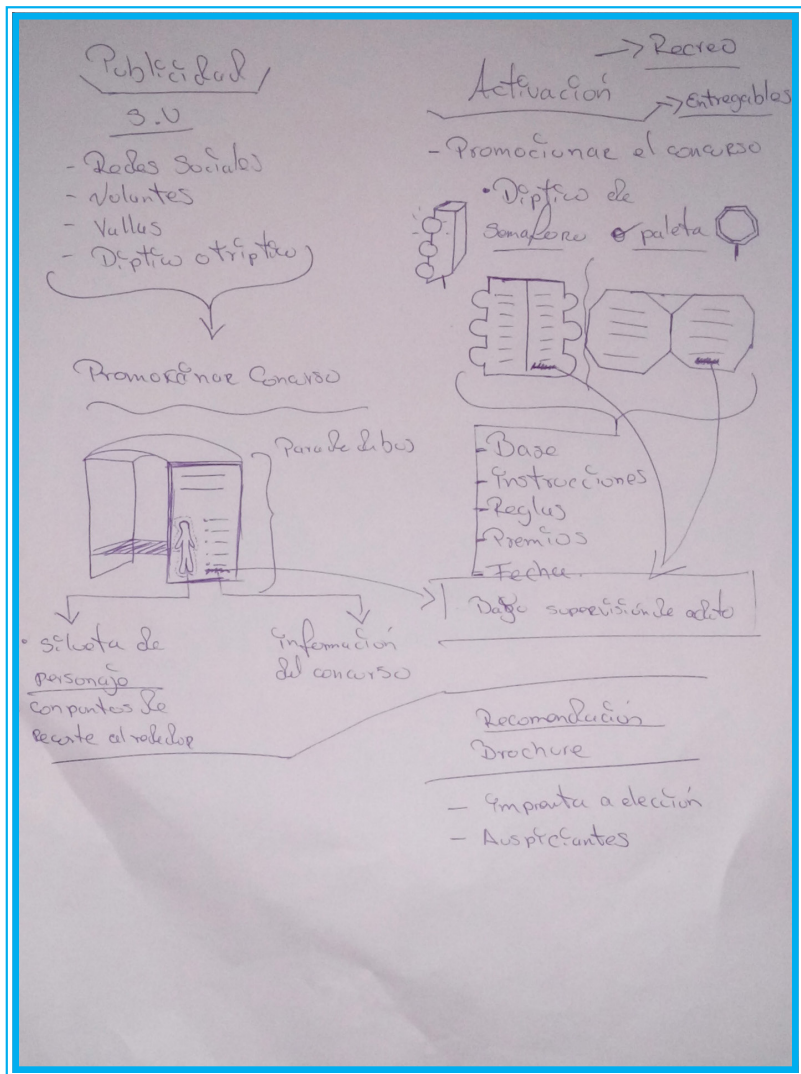 Publicidad
S.U
- Redes Sociales
- Volantes
- Vallas
- Díptico o tríptico
Promocinar Concurso
Parada de bus
• Silueta de
personaje
con puntos de
recorte alrededor
información
del concurso
→ Recreo
Activación
→ Entregables
- Promocionar el concurso
• Díptico de
Semaforo o paleta
- Base
- instrucciones
- Reglas
- Premios
- Fecha.
Bajo supervisión de adlto
Recomendación
Brochure
- imprenta a elección
- Auspiciantes